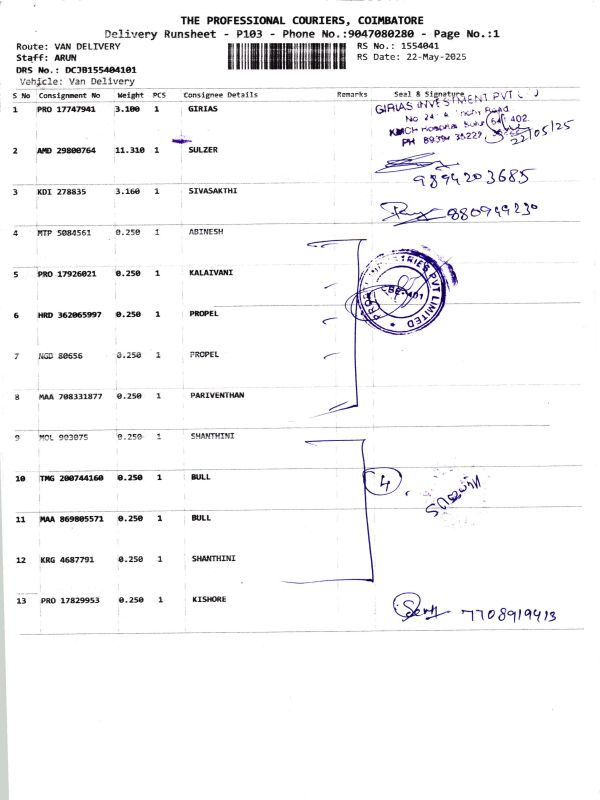 THE PROFESSIONAL COURIERS, COIMBATORE
Delivery Runsheet - P103 - Phone No.:9047080280 - Page No.:1
Route: VAN DELIVERY RS No.: 1554041
Staff: ARUN RS Date: 22-May-2025
DRS No.: DCJB155404101
Vehicle: Van Delivery
S No Consignment No Weight PCS Consignee Details Remarks Seal & Signature
1 PRO 17747941 3.100 1 GIRIAS
GIRIAS INVESTMENT PVT
22/05/25
2 AMD 29800764 11.310 1 SULZER
9894203685
3 KDI 278835 3.160 1 SIVASAKTHI
880949230
4 MTP 5084561 0.250 1 ABINESH
5 PRO 17926021 0.250 1 KALAIVANI
6 HRD 362065997 0.250 1 PROPEL
7 NGD 80656 0.250 1 PROPEL
PVT LIMITED
8 MAA 708331877 0.250 1 PARIVENTHAN
9 MOL 903075 0.250 1 SHANTHINI
10 TMG 200744160 0.250 1 BULL
4
11 MAA 869805571 0.250 1 BULL
12 KRG 4687791 0.250 1 SHANTHINI
13 PRO 17829953 0.250 1 KISHORE
7708919413